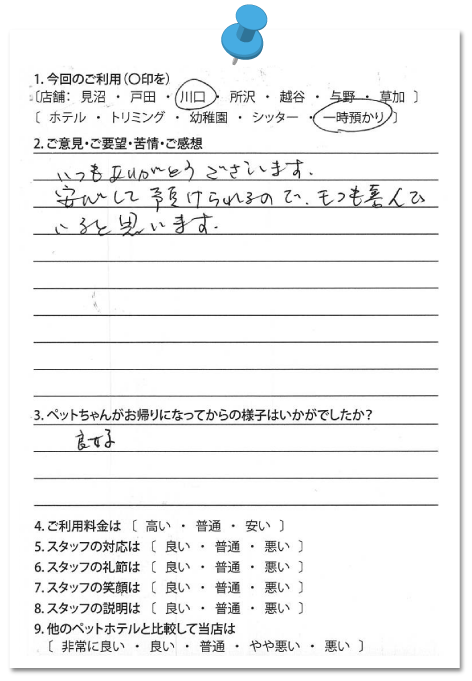 1. 今回のご利用(〇印を)
〔店舗: 見沼 ・ 戸田 ・ 川口 ・ 所沢 ・ 越谷 ・ 与野 ・ 草加 〕
〔 ホテル ・ トリミング ・ 幼稚園 ・ シッター ・ 一時預かり 〕
2. ご意見・ご要望・苦情・ご感想
いつもありがとうございます.
安心して預けられるので、モコも喜んで
いると思います.
3. ペットちゃんがお帰りになってからの様子はいかがでしたか?
良好
4. ご利用料金は 〔 高い ・ 普通 ・ 安い 〕
5. スタッフの対応は 〔 良い ・ 普通 ・ 悪い 〕
6. スタッフの礼節は 〔 良い ・ 普通 ・ 悪い 〕
7. スタッフの笑顔は 〔 良い ・ 普通 ・ 悪い 〕
8. スタッフの説明は 〔 良い ・ 普通 ・ 悪い 〕
9. 他のペットホテルと比較して当店は
〔 非常に良い ・ 良い ・ 普通 ・ やや悪い ・ 悪い 〕